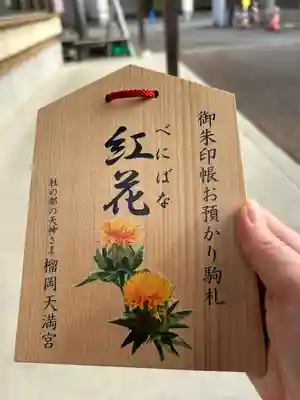 御朱印帳お預かり駒札
べにばな
紅花
杜の都の天神さま 榴岡天満宮